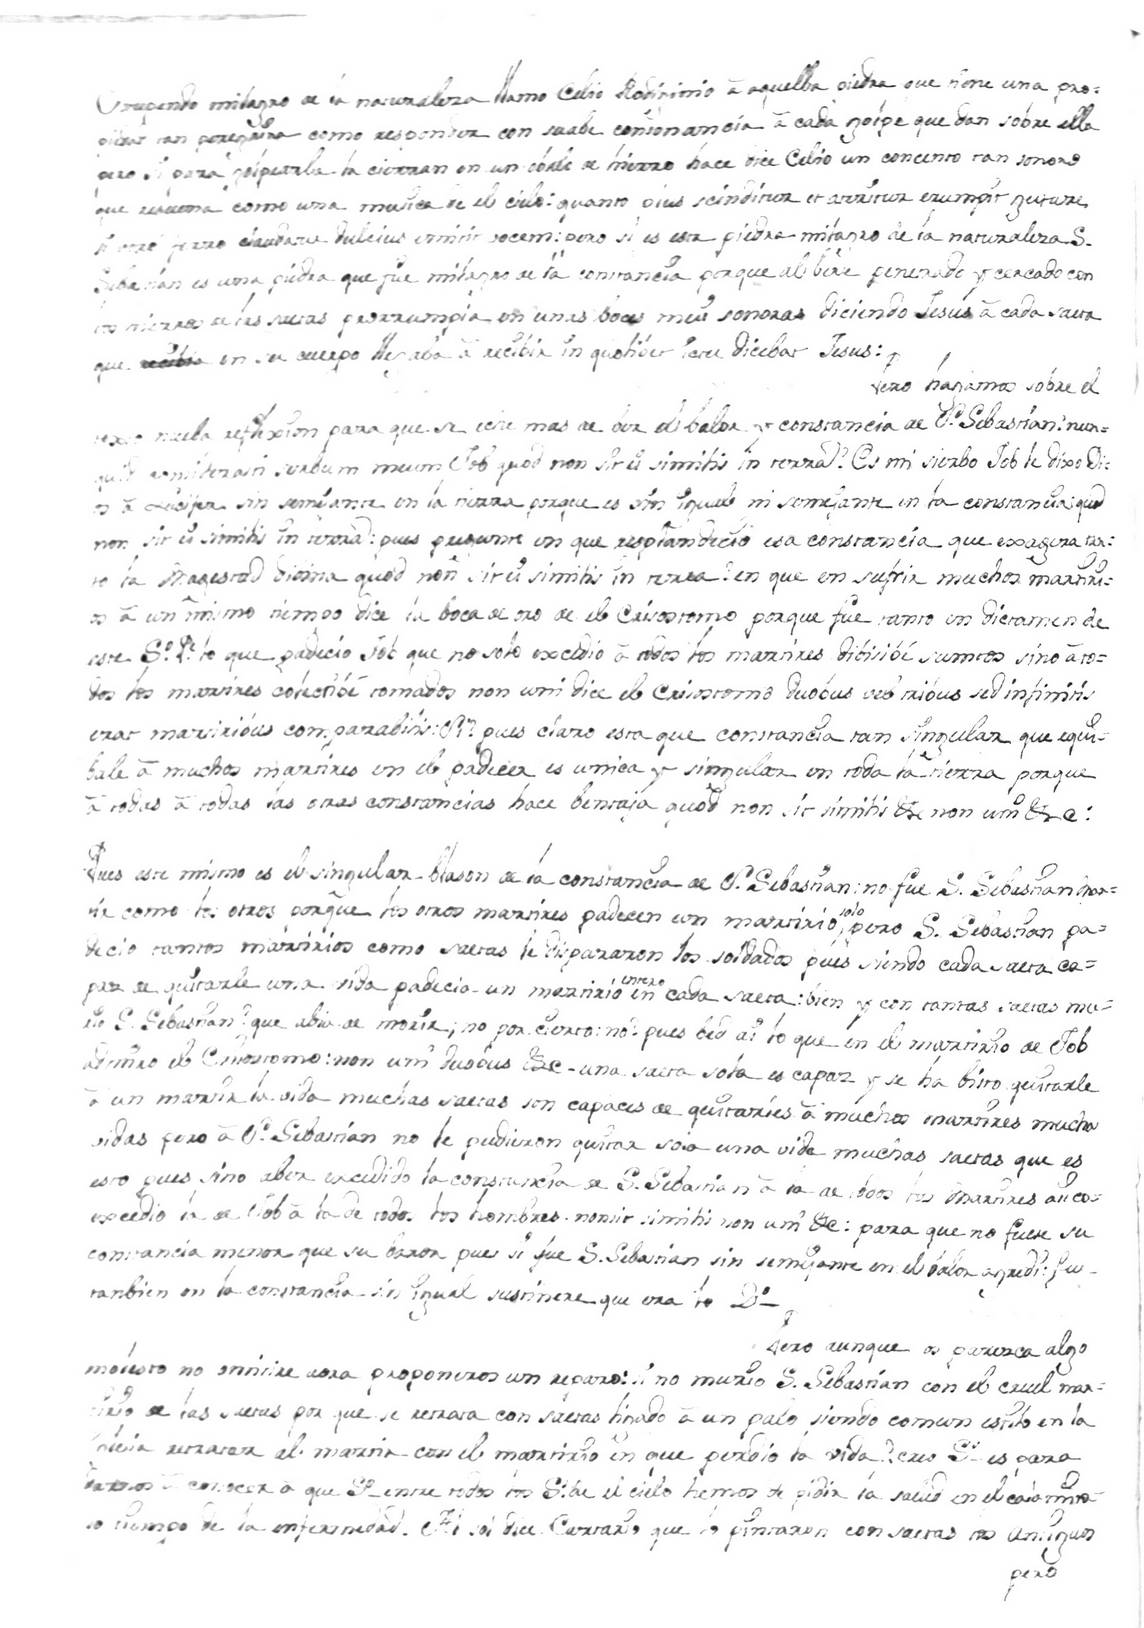 Estupendo milagro de la naturaleza llamo Celio Rodiginio â aquella piedra que tiene una pro=
piedad tan peregrina como responder con suabe consonancia â cada golpe que dan sobre ella
pero si para golpearla la cierran en un de hierro hace dice Celio un concento tan sonoro
que resuena como una musica de el cielo: quanto pius scinditur et atteritur erumpit
si ferro claudatur dulcius emitit vocem: pero si es esta piedra milagro de la naturaleza S.
Sebastian es una piedra que fue milagro de la constancia porque al berse penetrado y cercado con
los hierros de las saetas prorrumpia en unas boces mui sonoras diciendo Jesus â cada saeta
que recibia en su cuerpo llegaba â recibir in quolibet ictu dicebat Jesus:
Pero hagamos sobre el
texto nueba reflexion para que se ieie mas de ber el balor y constancia de Sn. Sebastian: nun=
quid considerasti serbum meum Job quod non sit ei similis in terra? Es mi sierbo Job le dixo Di=
os â Lucifer sin semejante en la tierra porque es sin igual ni semejante en la constancia: quod
non sit ei similis in terra: pues pregunto en que resplandecio esa constancia que exagera tan=
to la Magestad divina quod non sit ei similis in terra? en que en sufrir muchos martiri=
os â un mismo tiempo dice la boca de oro de el Crisostomo porque fue tanto en dictamen de
este So. Pe. lo que padecio Job que no solo excedio â todos los martires dibisibe sumtos sino â to=
dos los martires colectibe tomados non uni dice el Crisostomo duobus vel tribus sed infinitis
erat martiribus comparabilis: pues claro esta que constancia tan singular que equi=
bale â muchos martires en el padecer es unica y singular en toda la tierra porque
â todas â todas las otras constancias hace bentaja quod non sit similis &c non uni &c:
Pues este mismo es el singular blason de la constancia de Sn. Sebastian: no fue S. Sebastian mar=
tir como los otros porque los otros martires padecen un martirio solo, pero S. Sebastian pa=
decio tantos martirios como saetas le dispararon los soldados pues siendo cada saeta ca=
paz de quitarle una vida padecia un martirio entero en cada saeta: bien y con tantas saetas mu=
rio S. Sebastian? que abia de morir, no por cierto: no? pues bed ai lo que en el martirio de Job
admiro el Crisostomo: non uni duobus &c - una saeta sola es capaz y se ha bisto quitarle
â un martir la vida muchas saetas son capaces de quitarles â muchos martires muchas
vidas pero â Sn. Sebastian no le pudieron quitar sola una vida muchas saetas que es
esto pues sino aber excedido la constancia de S. Sebastian â la de todos los Martires asi co=
excedio la de Job â la de todos los hombres non sit similis non uni &c: para que no fuese su
constancia menor que su baron pues si fue S. Sebastian sin semejante en el balor agredi: fue
tanbien en la constancia sin igual sustinere que era lo 2o
Pero aunque os paresca algo
molesto no omitire aora proponeros un reparo: si no murio S. Sebastian con el cruel mar=
tirio de las saetas por que se retrata con saetas ligado â un palo siendo comun estilo en la
Iglesia retratar al martir con el martirio en que perdio la vida? creo So. es para
darnos â conocer â que So. entre todos los S. de el cielo hemos de pidir la salud en el
so tiempo de la enfermedad. Al sol dice Cartario que lo pintaron con saetas los antiguos
pero